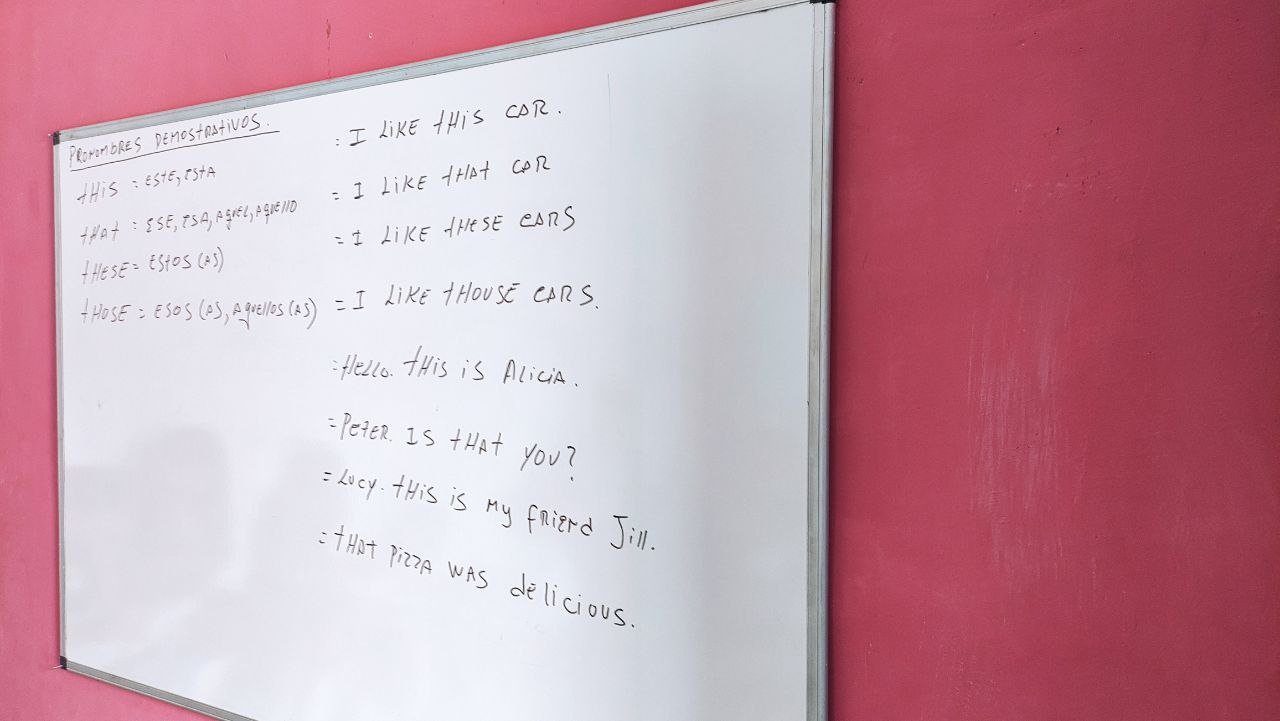 PRONOMBRES DEMOSTRATIVOS.
tHiS = ESTE, ESTA
tHAt = ESE, ESA, AQUEL, AQUELLO
tHESE = EStOS (AS)
tHOSE = ESOS (AS, AQUELLOS (AS)
= I LiKE tHiS CAR.
= I LiKE tHAt CAR
= I LiKE tHESE CARS
= I LiKE tHOUSE CARS.
= HELLO. tHiS iS ALiCiA.
= PETER. IS tHAt YOU?
= LUCY. tHiS iS MY friEnd Jill.
= tHAt PiZZA WAS dElicious.